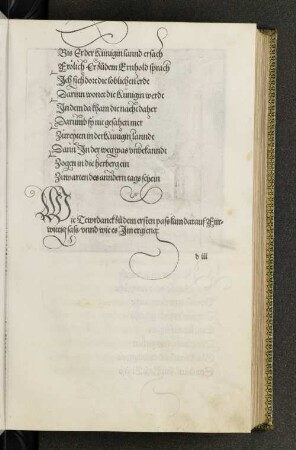 Bis Er der Künigin lannd ersach
Frölich Er zů dem Ernhold sprach
Ich sich dort die loblichen erde
Darinn wonet die Künigin werdt
In dem da kham die nacht daher
Darumb sy nit gesahen mer
Zureyten in der Künigin lanndt
Dann In der weg was vnbekanndt
Zogen in die herberg ein
Zuwarten des anndern tags schein
Wie Tewrdanck zů dem ersten pass kam darauf Fürwittig sass vnnd wie es Im ergieng
d iii